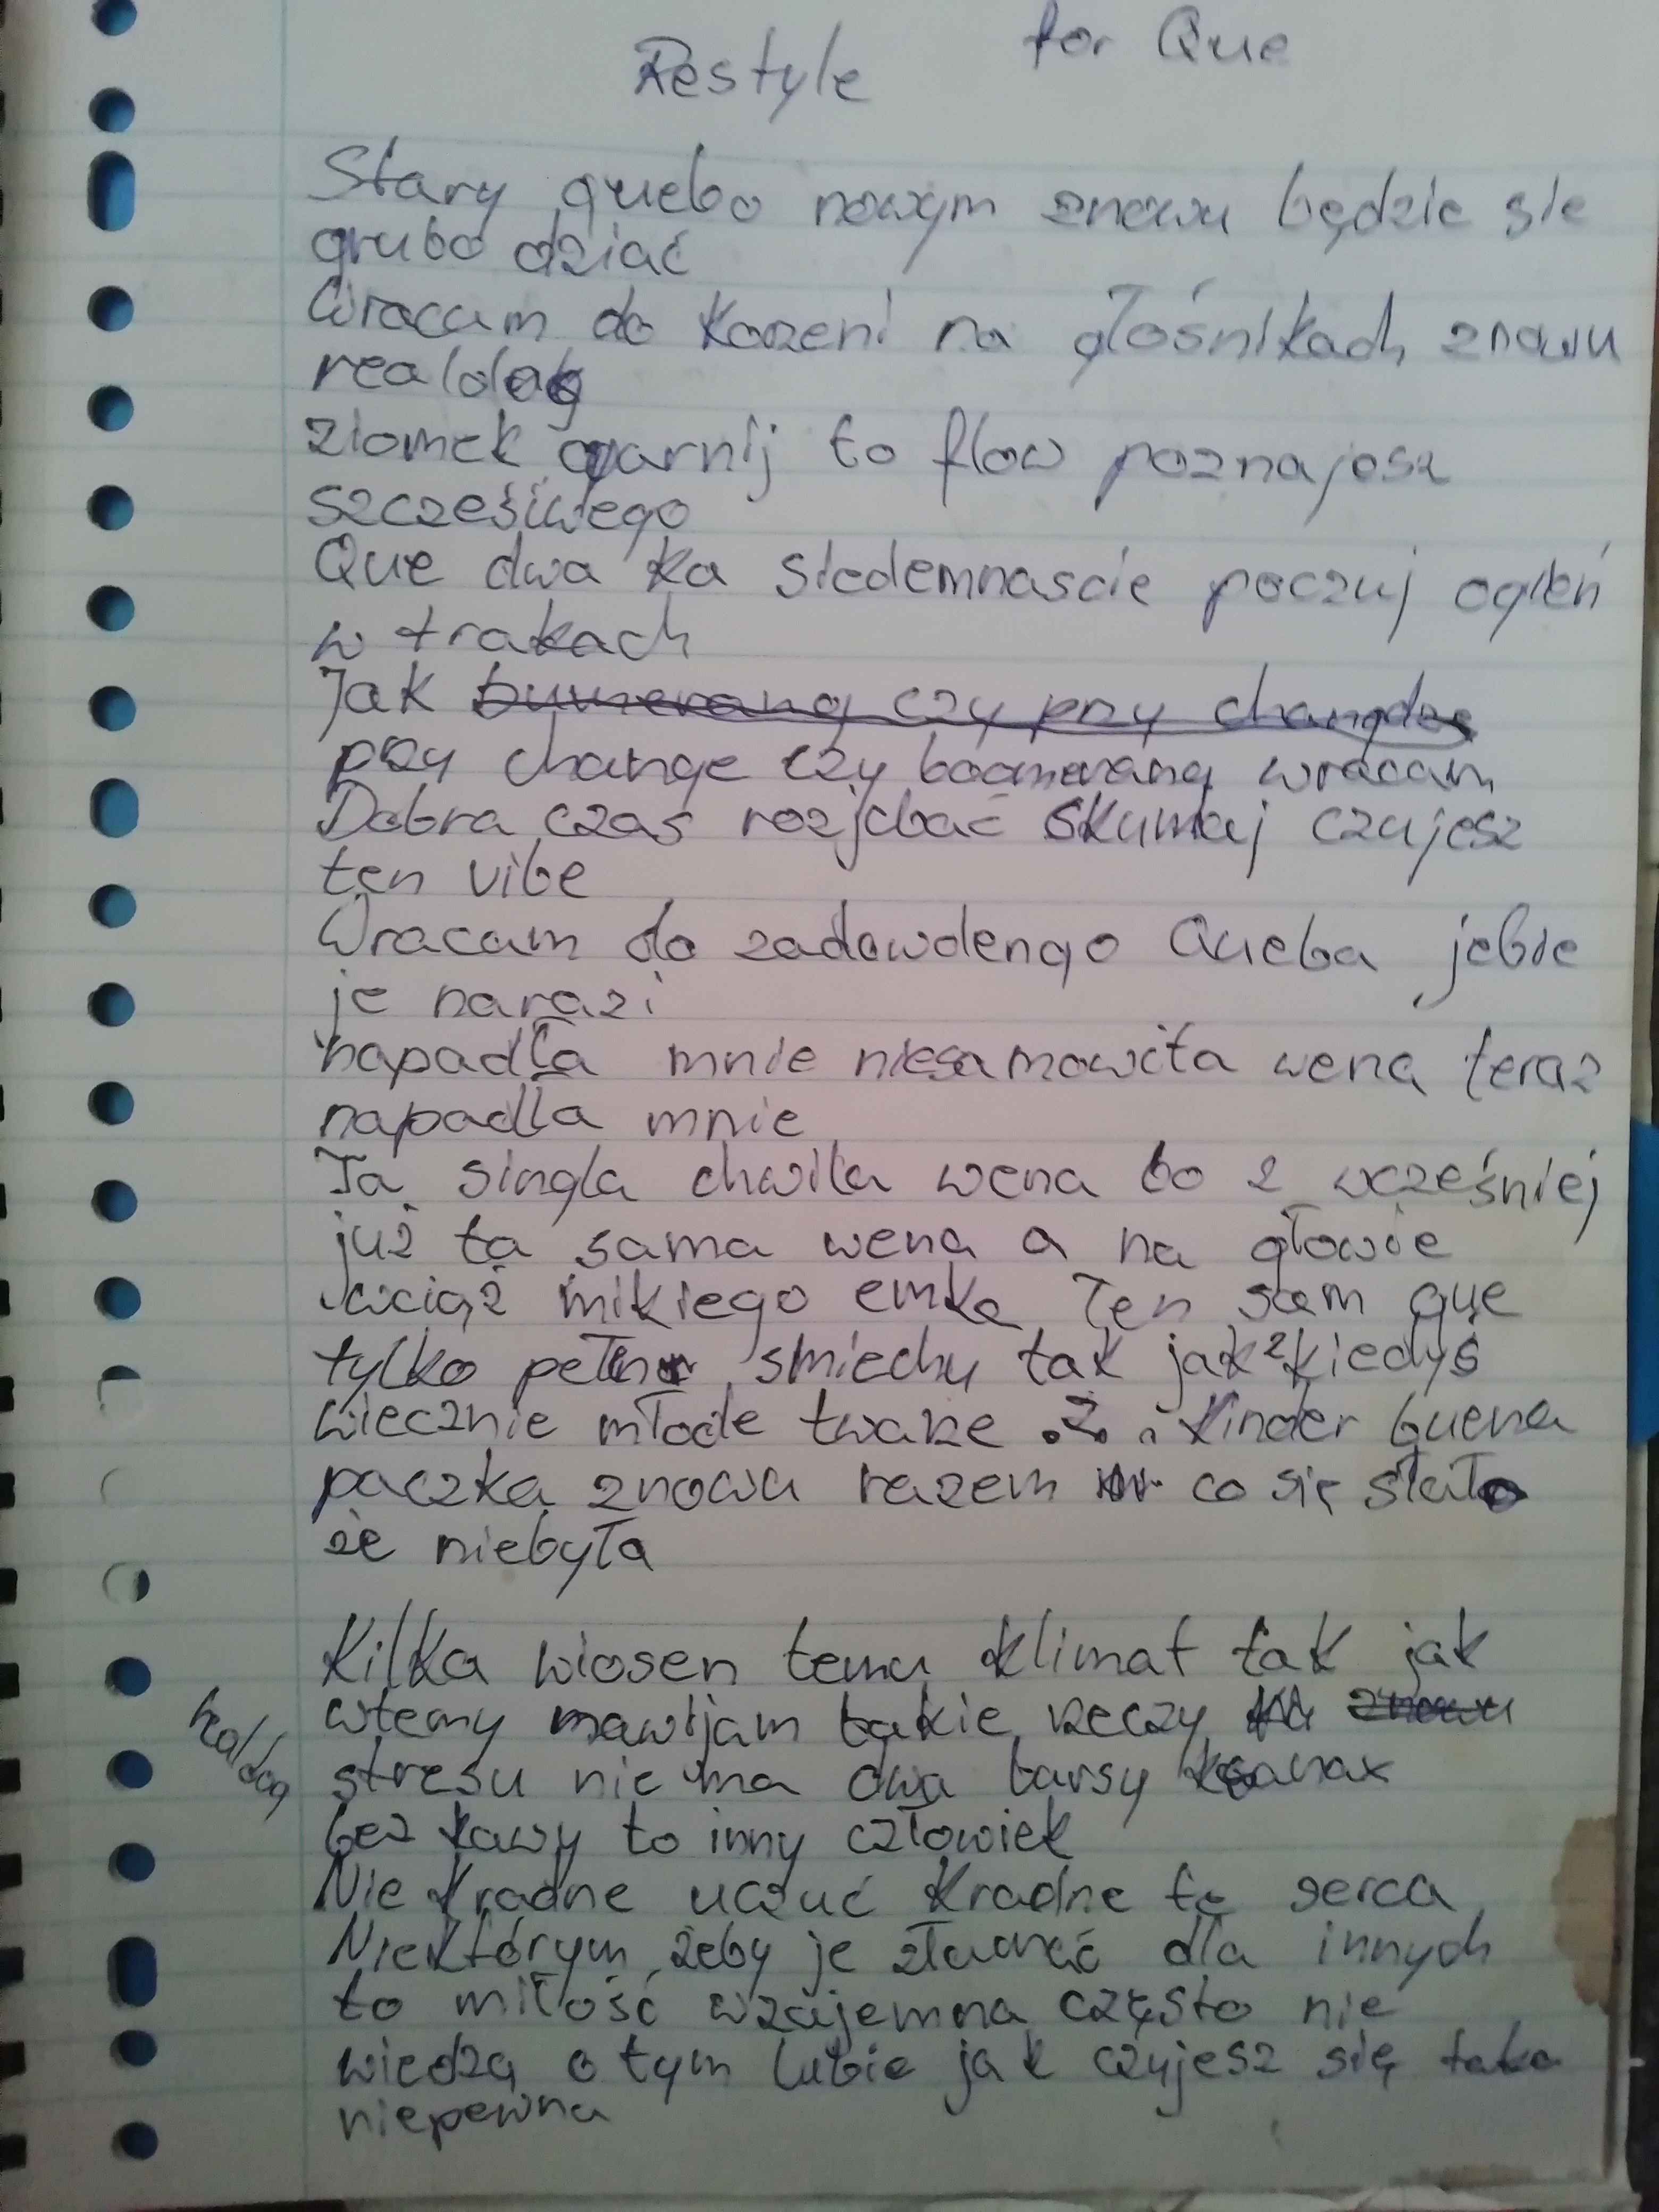 Restyle for Que
Stary quebo nowym znowu będzie sie
grubo dziać
Wracam do kozeni na głośnikach znowu
realdog
ziomek ogarnij to flow poznajesz
szcześiwego
Que dwa ka siedemnascie poczuj ogień
w trakach
Jak bumerang czy przy
przy change czy boomerang wracam
Dobra czas rozjebać skumaj czujesz
ten vibe
Wracam do Queba jebie
je narazi
napadła mnie niesamowita wena teraz
napadła mnie
Ta singla chwila wena bo z wcześniej
już ta sama wena a na głowie
wciąż mikiego emka Ten sam que
tylko pełno smiechu tak jak kiedyś
wiecznie młode twarze Kinder buena
paczka znowu razem co się stało
że niebyła
Kilka wiosen temu klimat tak jak
wtemy mawijam takie rzeczy znowu
realdog
stresu nie ma dwa barsy
bez kawy to inny człowiek
Nie kradne uczuć kradne te serca
Niektórym żeby je złamać dla innych
to miłość wzajemna często nie
wiedzą o tym lubie jak czujesz się taka
niepewna